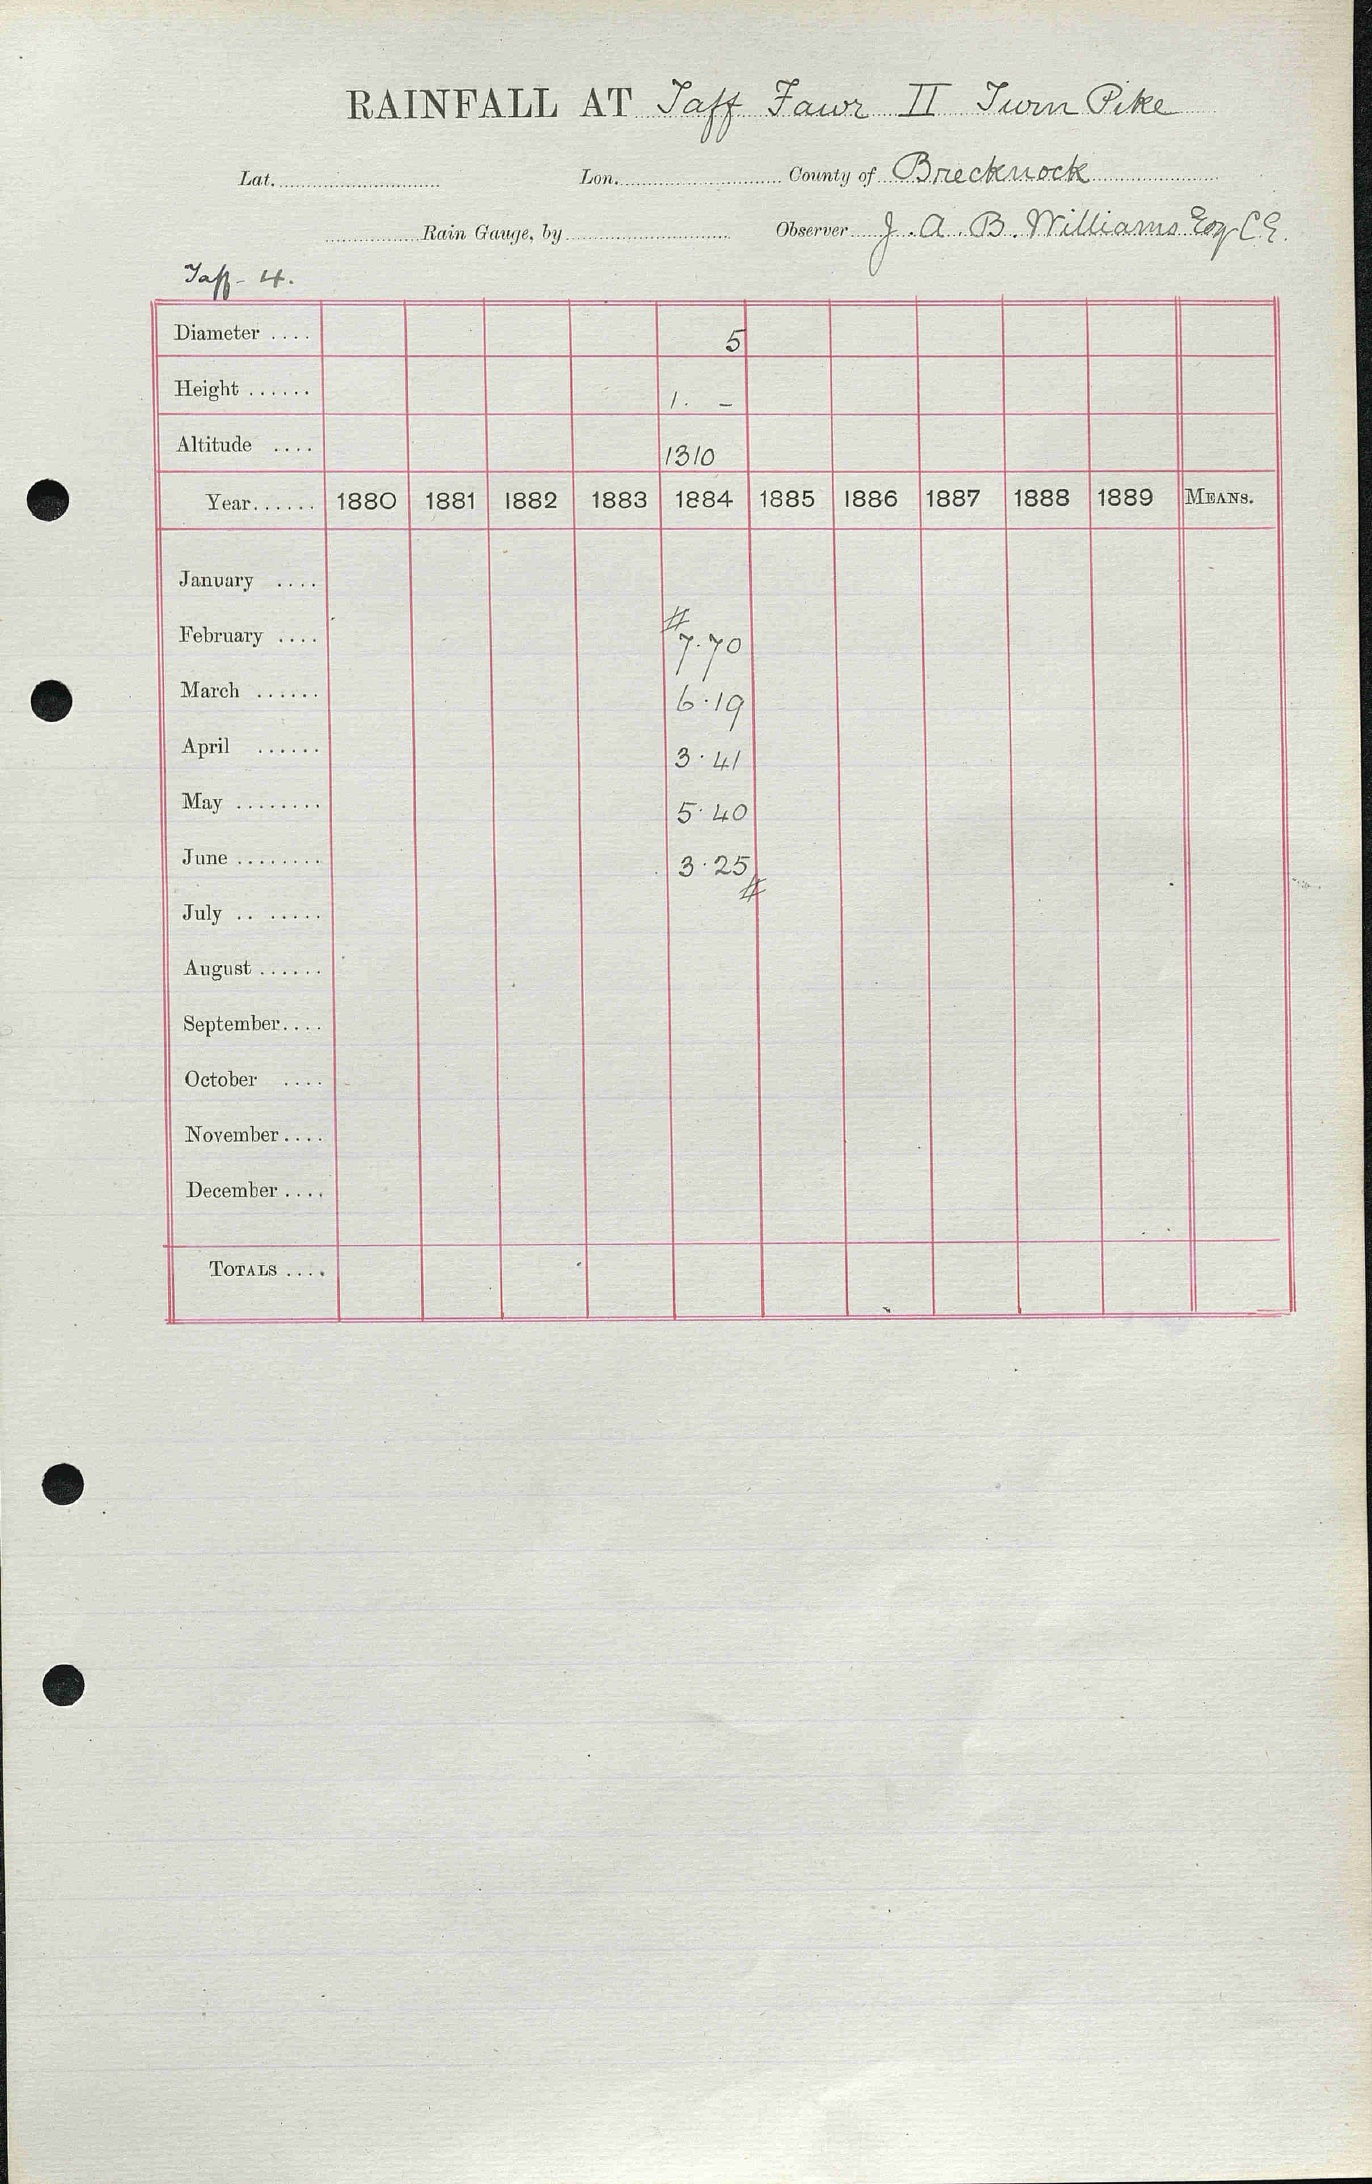 RAINFALL AT Taff Fawr II Turn Pike
Lat. Lon. County of Brecknock
Rain Gauge, by Observer J. A. B. Williams Esq C.E.
Taff - 4.
Diameter .... 5
Height ...... 1. -
Altitude .... 1310
Year...... 1880 1881 1882 1883 1884 1885 1886 1887 1888 1889 MEANS.
January ....
February .... # 7.70
March ...... 6.19
April ...... 3.41
May ........ 5.40
June ........ 3.25 #
July .. ......
August ......
September....
October ....
November....
December....
TOTALS ....